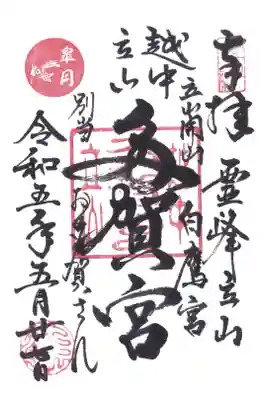 奉拝
霊峰立山
立山開山
白鷹宮
多賀宮
越中
立山
別当
賀されれ
令和五年五月廿七日
皐月